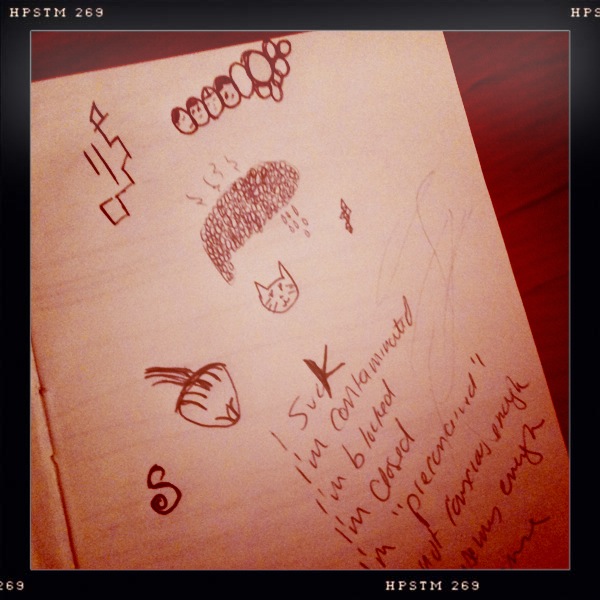 HPSTM 269
HPS
S
I Suck
I'm contaminated
I'm blocked
I'm closed
I'm "preconceived"
not anxious enough
enough
269
HPSTM 269